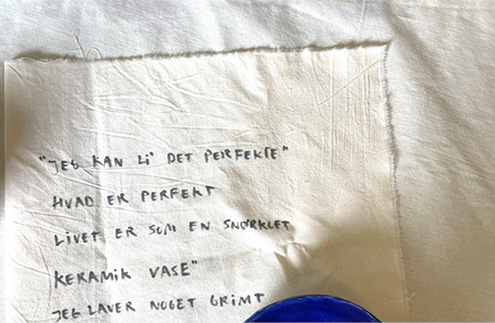 "JEG KAN LI' DET PERFEKTE"
HVAD ER PERFEKT
LIVET ER SOM EN SNØRKLET
KERAMIK VASE"
JEG LAVER NOGET GRIMT